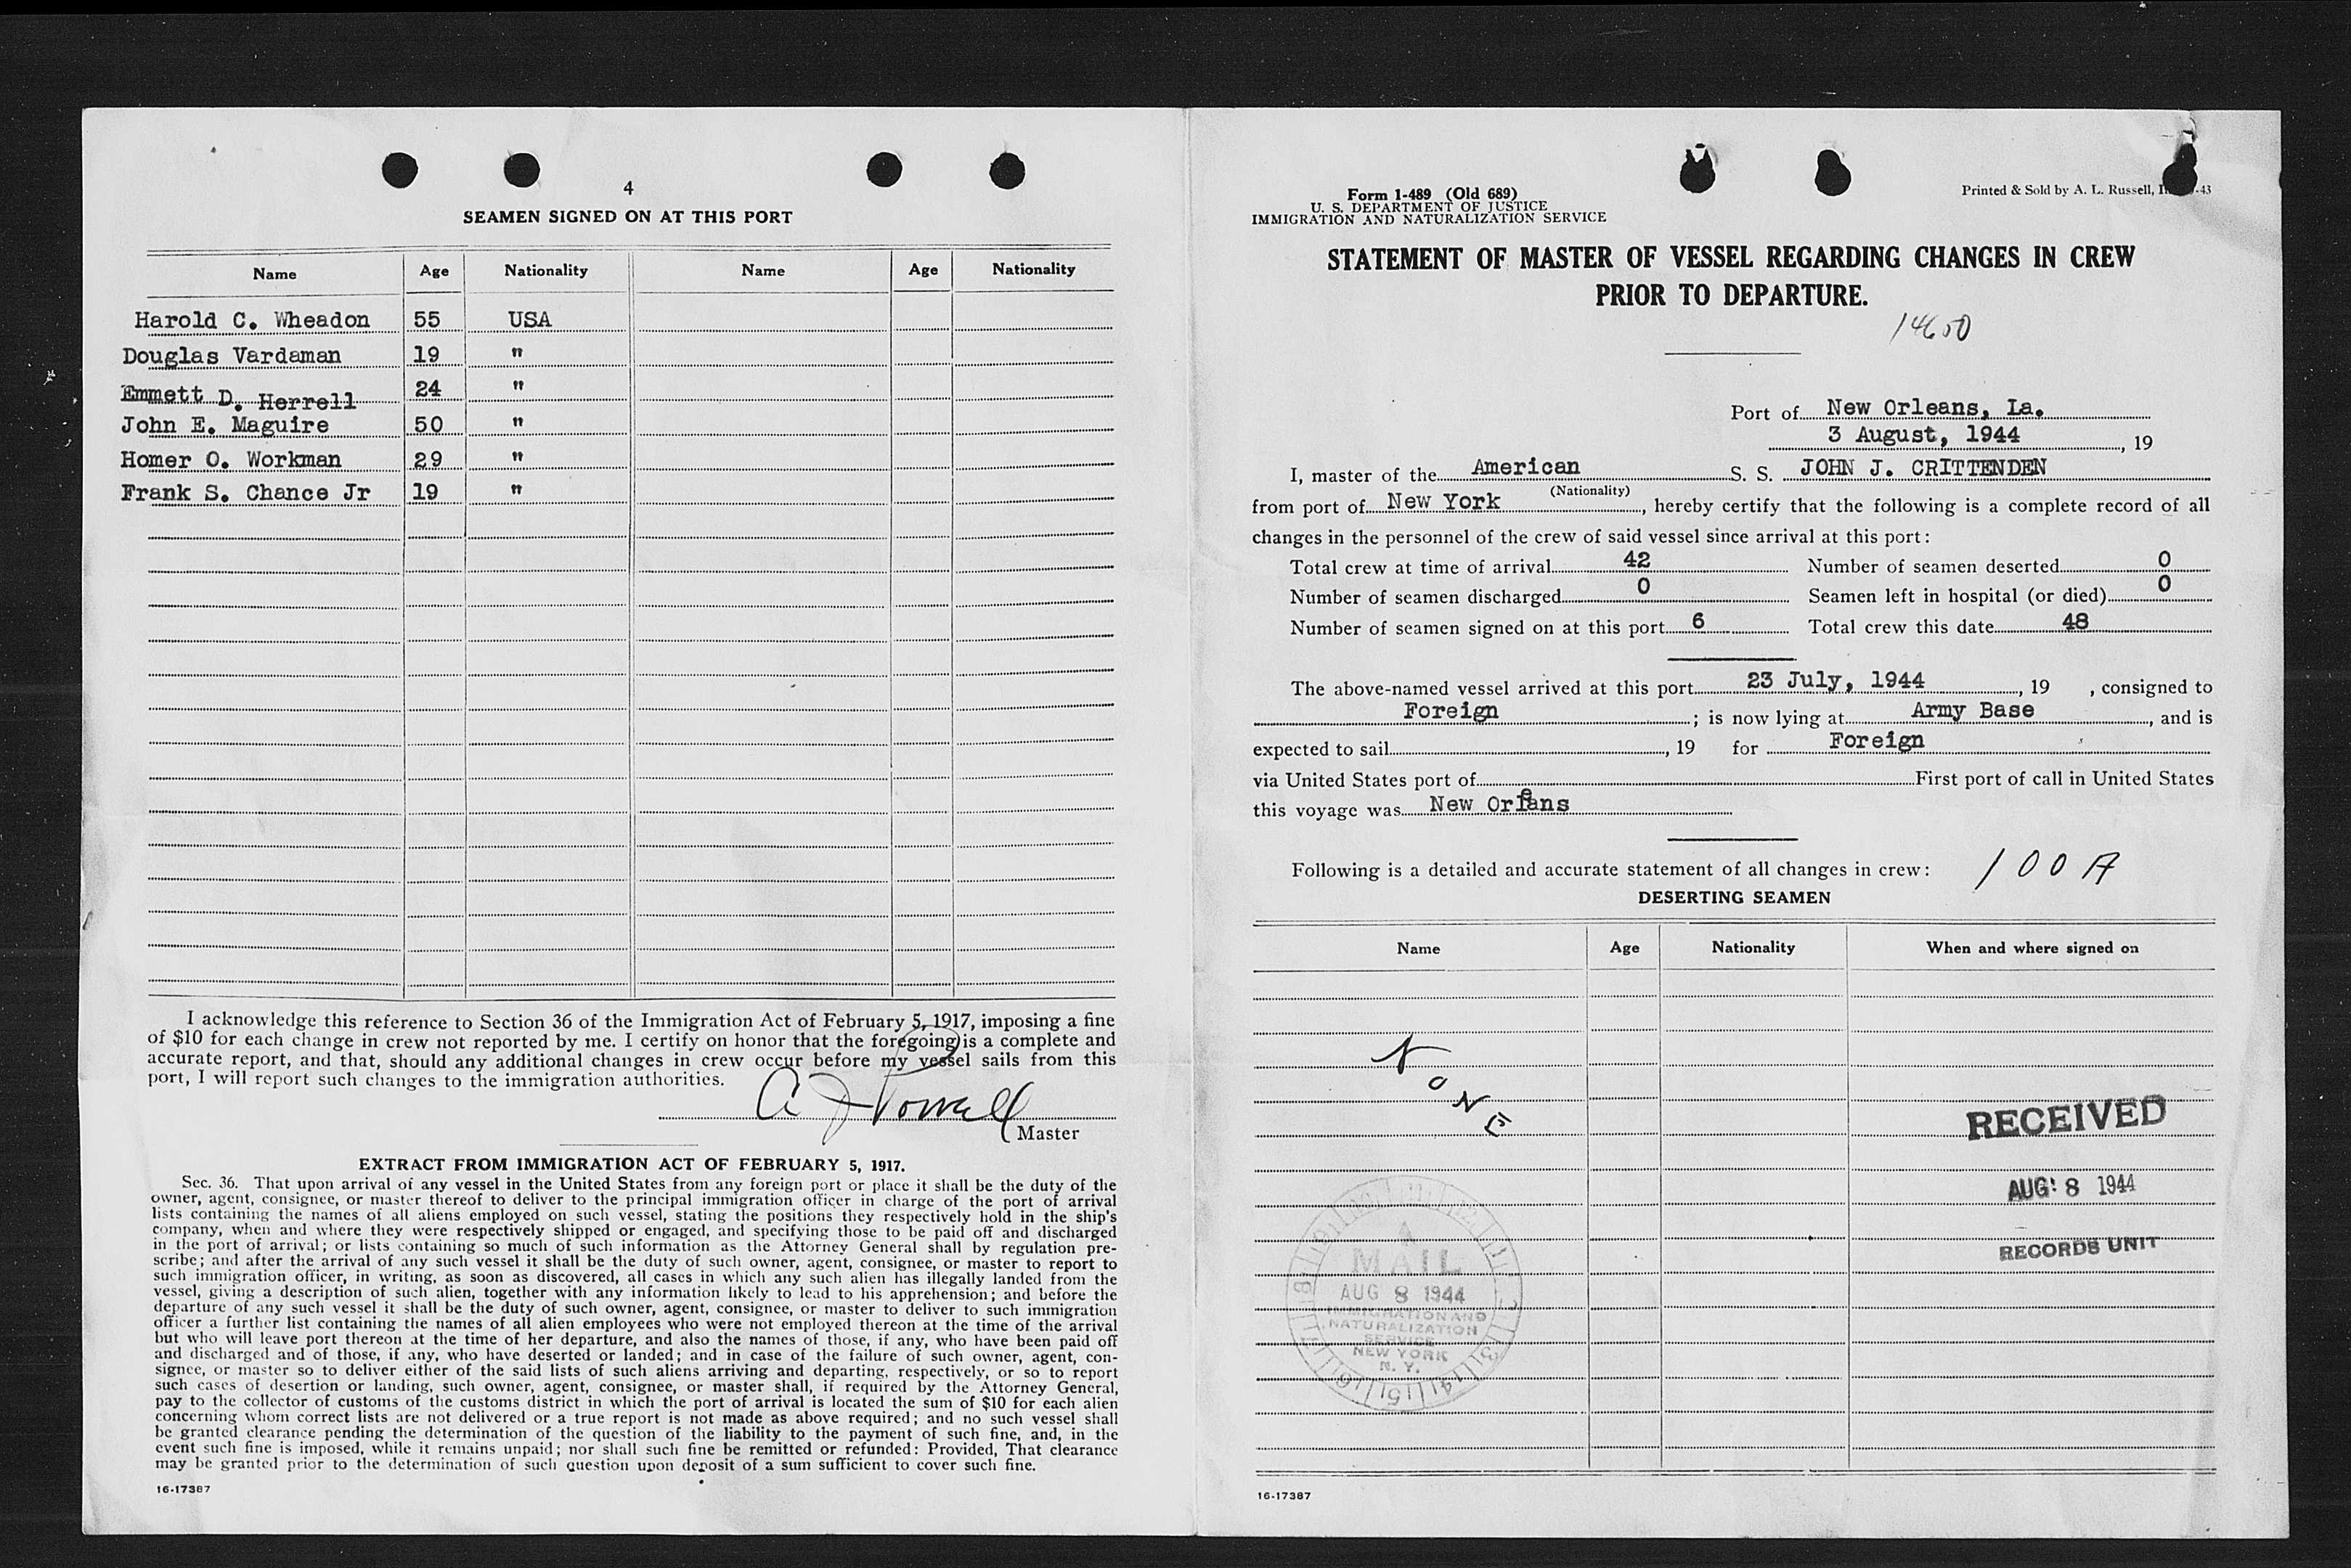 4
SEAMEN SIGNED ON AT THIS PORT
Name Age Nationality Name Age Nationality
Harold C. Wheadon 55 USA
Douglas Vardaman 19 "
Emmett D. Herrell 24 "
John E. Maguire 50 "
Homer O. Workman 29 "
Frank S. Chance Jr 19 "
I acknowledge this reference to Section 36 of the Immigration Act of February 5, 1917, imposing a fine
of $10 for each change in crew not reported by me. I certify on honor that the foregoing is a complete and
accurate report, and that, should any additional changes in crew occur before my vessel sails from this
port, I will report such changes to the immigration authorities.
Master
EXTRACT FROM IMMIGRATION ACT OF FEBRUARY 5, 1917.
Sec. 36. That upon arrival of any vessel in the United States from any foreign port or place it shall be the duty of the
owner, agent, consignee, or master thereof to deliver to the principal immigration officer in charge of the port of arrival
lists containing the names of all aliens employed on such vessel, stating the positions they respectively hold in the ship's
company, when and where they were respectively shipped or engaged, and specifying those to be paid off and discharged
in the port of arrival; or lists containing so much of such information as the Attorney General shall by regulation pre-
scribe; and after the arrival of any such vessel it shall be the duty of such owner, agent, consignee, or master to report to
such immigration officer, in writing, as soon as discovered, all cases in which any such alien has illegally landed from the
vessel, giving a description of such alien, together with any information likely to lead to his apprehension; and before the
departure of any such vessel it shall be the duty of such owner, agent, consignee, or master to deliver to such immigration
officer a further list containing the names of all alien employees who were not employed thereon at the time of the arrival
but who will leave port thereon at the time of her departure, and also the names of those, if any, who have been paid off
and discharged and of those, if any, who have deserted or landed; and in case of the failure of such owner, agent, con-
signee, or master so to deliver either of the said lists of such aliens arriving and departing, respectively, or so to report
such cases of desertion or landing, such owner, agent, consignee, or master shall, if required by the Attorney General,
pay to the collector of customs of the customs district in which the port of arrival is located the sum of $10 for each alien
concerning whom correct lists are not delivered or a true report is not made as above required; and no such vessel shall
be granted clearance pending the determination of the question of the liability to the payment of such fine, and, in the
event such fine is imposed, while it remains unpaid; nor shall such fine be remitted or refunded: Provided, That clearance
may be granted prior to the determination of such question upon deposit of a sum sufficient to cover such fine.
16-17387
Form 1-489 (Old 689)
U. S. DEPARTMENT OF JUSTICE
IMMIGRATION AND NATURALIZATION SERVICE
Printed & Sold by A. L. Russell, -43
STATEMENT OF MASTER OF VESSEL REGARDING CHANGES IN CREW
PRIOR TO DEPARTURE.
14650
Port of New Orleans, La.
3 August, 1944, 19
I, master of the American S. S. JOHN J. CRITTENDEN
(Nationality)
from port of New York, hereby certify that the following is a complete record of all
changes in the personnel of the crew of said vessel since arrival at this port:
Total crew at time of arrival 42 Number of seamen deserted 0
Number of seamen discharged 0 Seamen left in hospital (or died) 0
Number of seamen signed on at this port 6 Total crew this date 48
The above-named vessel arrived at this port 23 July, 1944, 19 , consigned to
Foreign; is now lying at Army Base, and is
expected to sail, 19 for Foreign
via United States port of First port of call in United States
this voyage was New Orleans
Following is a detailed and accurate statement of all changes in crew: 100 A
DESERTING SEAMEN
Name Age Nationality When and where signed on
NONE
RECEIVED
AUG 8 1944
RECORDS UNIT
MAIL
AUG 8 1944
IMMIGRATION AND
NATURALIZATION
SERVICE
NEW YORK
N. Y.
16-17387